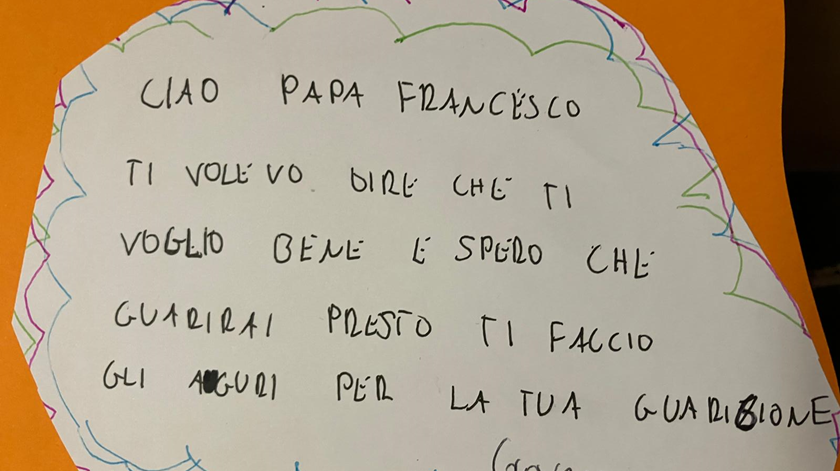 CIAO PAPA FRANCESCO
TI VOLEVO DIRE CHE TI
VOGLIO BENE E SPERO CHE
GUARIRAI PRESTO TI FACCIO
GLI AUGURI PER LA TUA GUARIGIONE